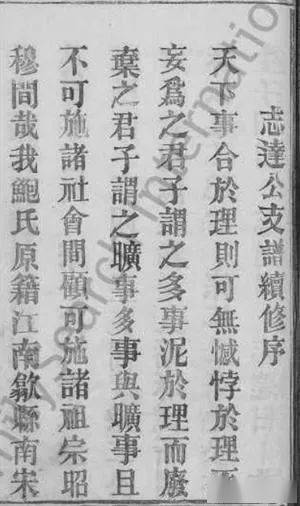 志達公支譜續修序
天下事合於理則可無憾悖於理而
妄爲之君子謂之多事泥於理而廢
棄之君子謂之曠事多事與曠事且
不可施諸社會間顧可施諸祖宗昭
穆間哉我鮑氏原籍江南歙縣南宋